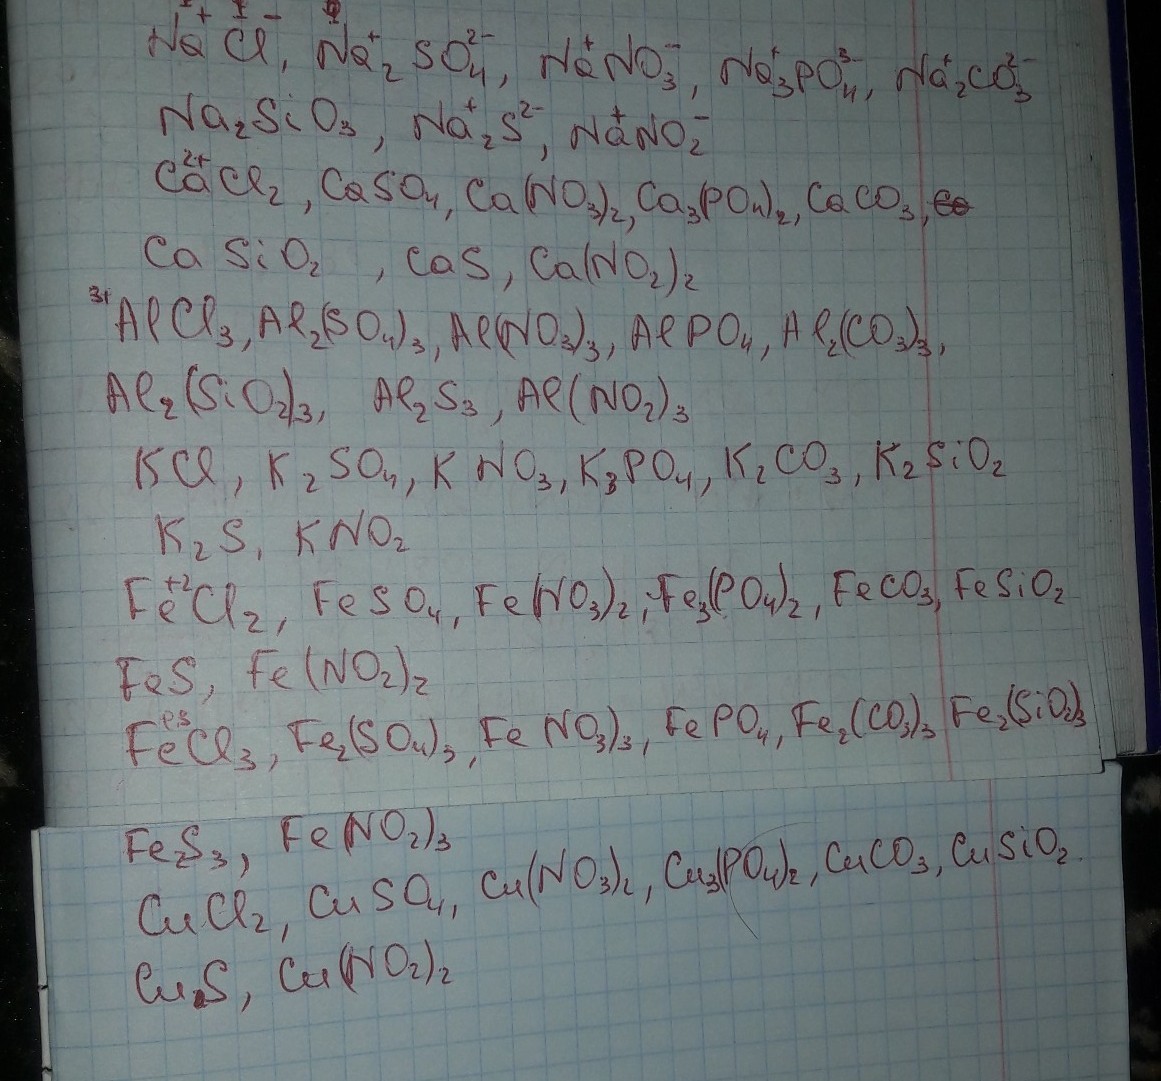 Na⁺Cl⁻, Na⁺₂SO₄²⁻, Na⁺NO₃⁻, Na⁺₃PO₄³⁻, Na⁺₂CO₃²⁻
Na₂SiO₃, Na⁺₂S²⁻, Na⁺NO₂⁻
Ca²⁺Cl₂, CaSO₄, Ca(NO₃)₂, Ca₃(PO₄)₂, CaCO₃,
CaSiO₂, CaS, Ca(NO₂)₂
³⁺AlCl₃, Al₂(SO₄)₃, Al(NO₃)₃, AlPO₄, Al₂(CO₃)₃,
Al₂(SiO₂)₃, Al₂S₃, Al(NO₂)₃
KCl, K₂SO₄, KNO₃, K₃PO₄, K₂CO₃, K₂SiO₂
K₂S, KNO₂
Fe⁺²Cl₂, FeSO₄, Fe(NO₃)₂, Fe₃(PO₄)₂, FeCO₃, FeSiO₂
FeS, Fe(NO₂)₂
FeCl₃, Fe₂(SO₄)₃, Fe NO₃)₃, FePO₄, Fe₂(CO₃)₃ Fe₂(SiO₂)₃
Fe₂S₃, Fe(NO₂)₃
CuCl₂, CuSO₄, Cu(NO₃)₂, Cu₃(PO₄)₂, CuCO₃, CuSiO₂
CuS, Cu(NO₂)₂